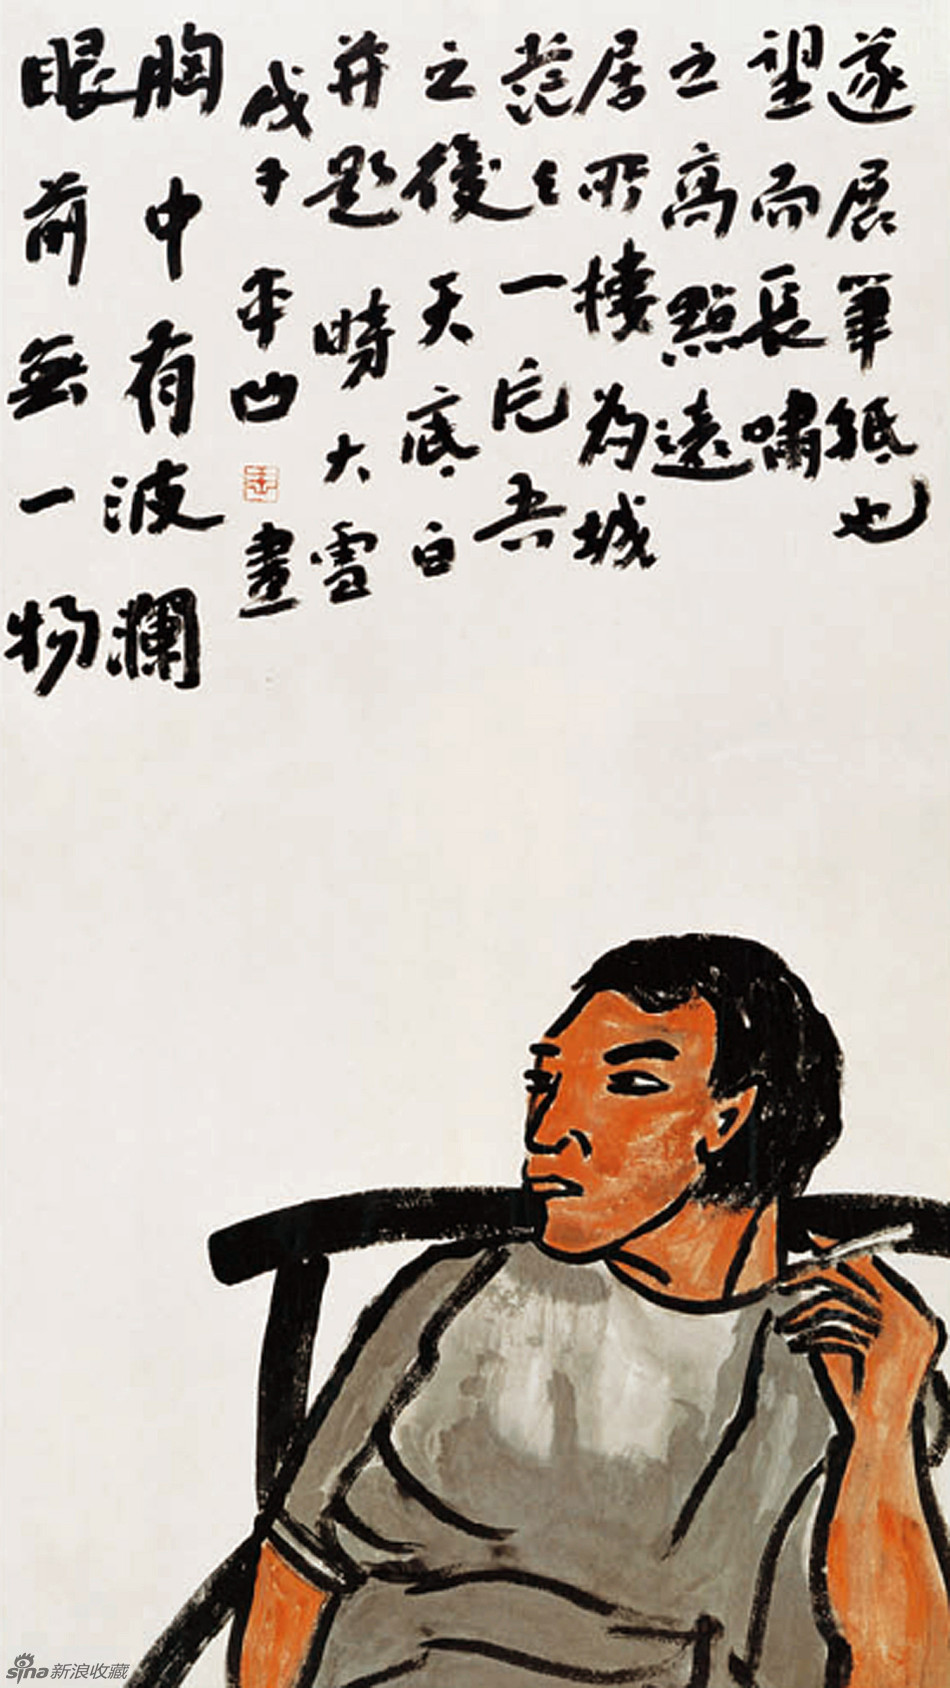 眼前無一物
胸中有波瀾
戊子平凹畫
并題時大雪
之後天底白
茫々一片吾
居所樓為城
之高點遠
望而長嘯
遂展筆紙也
sina新浪收藏